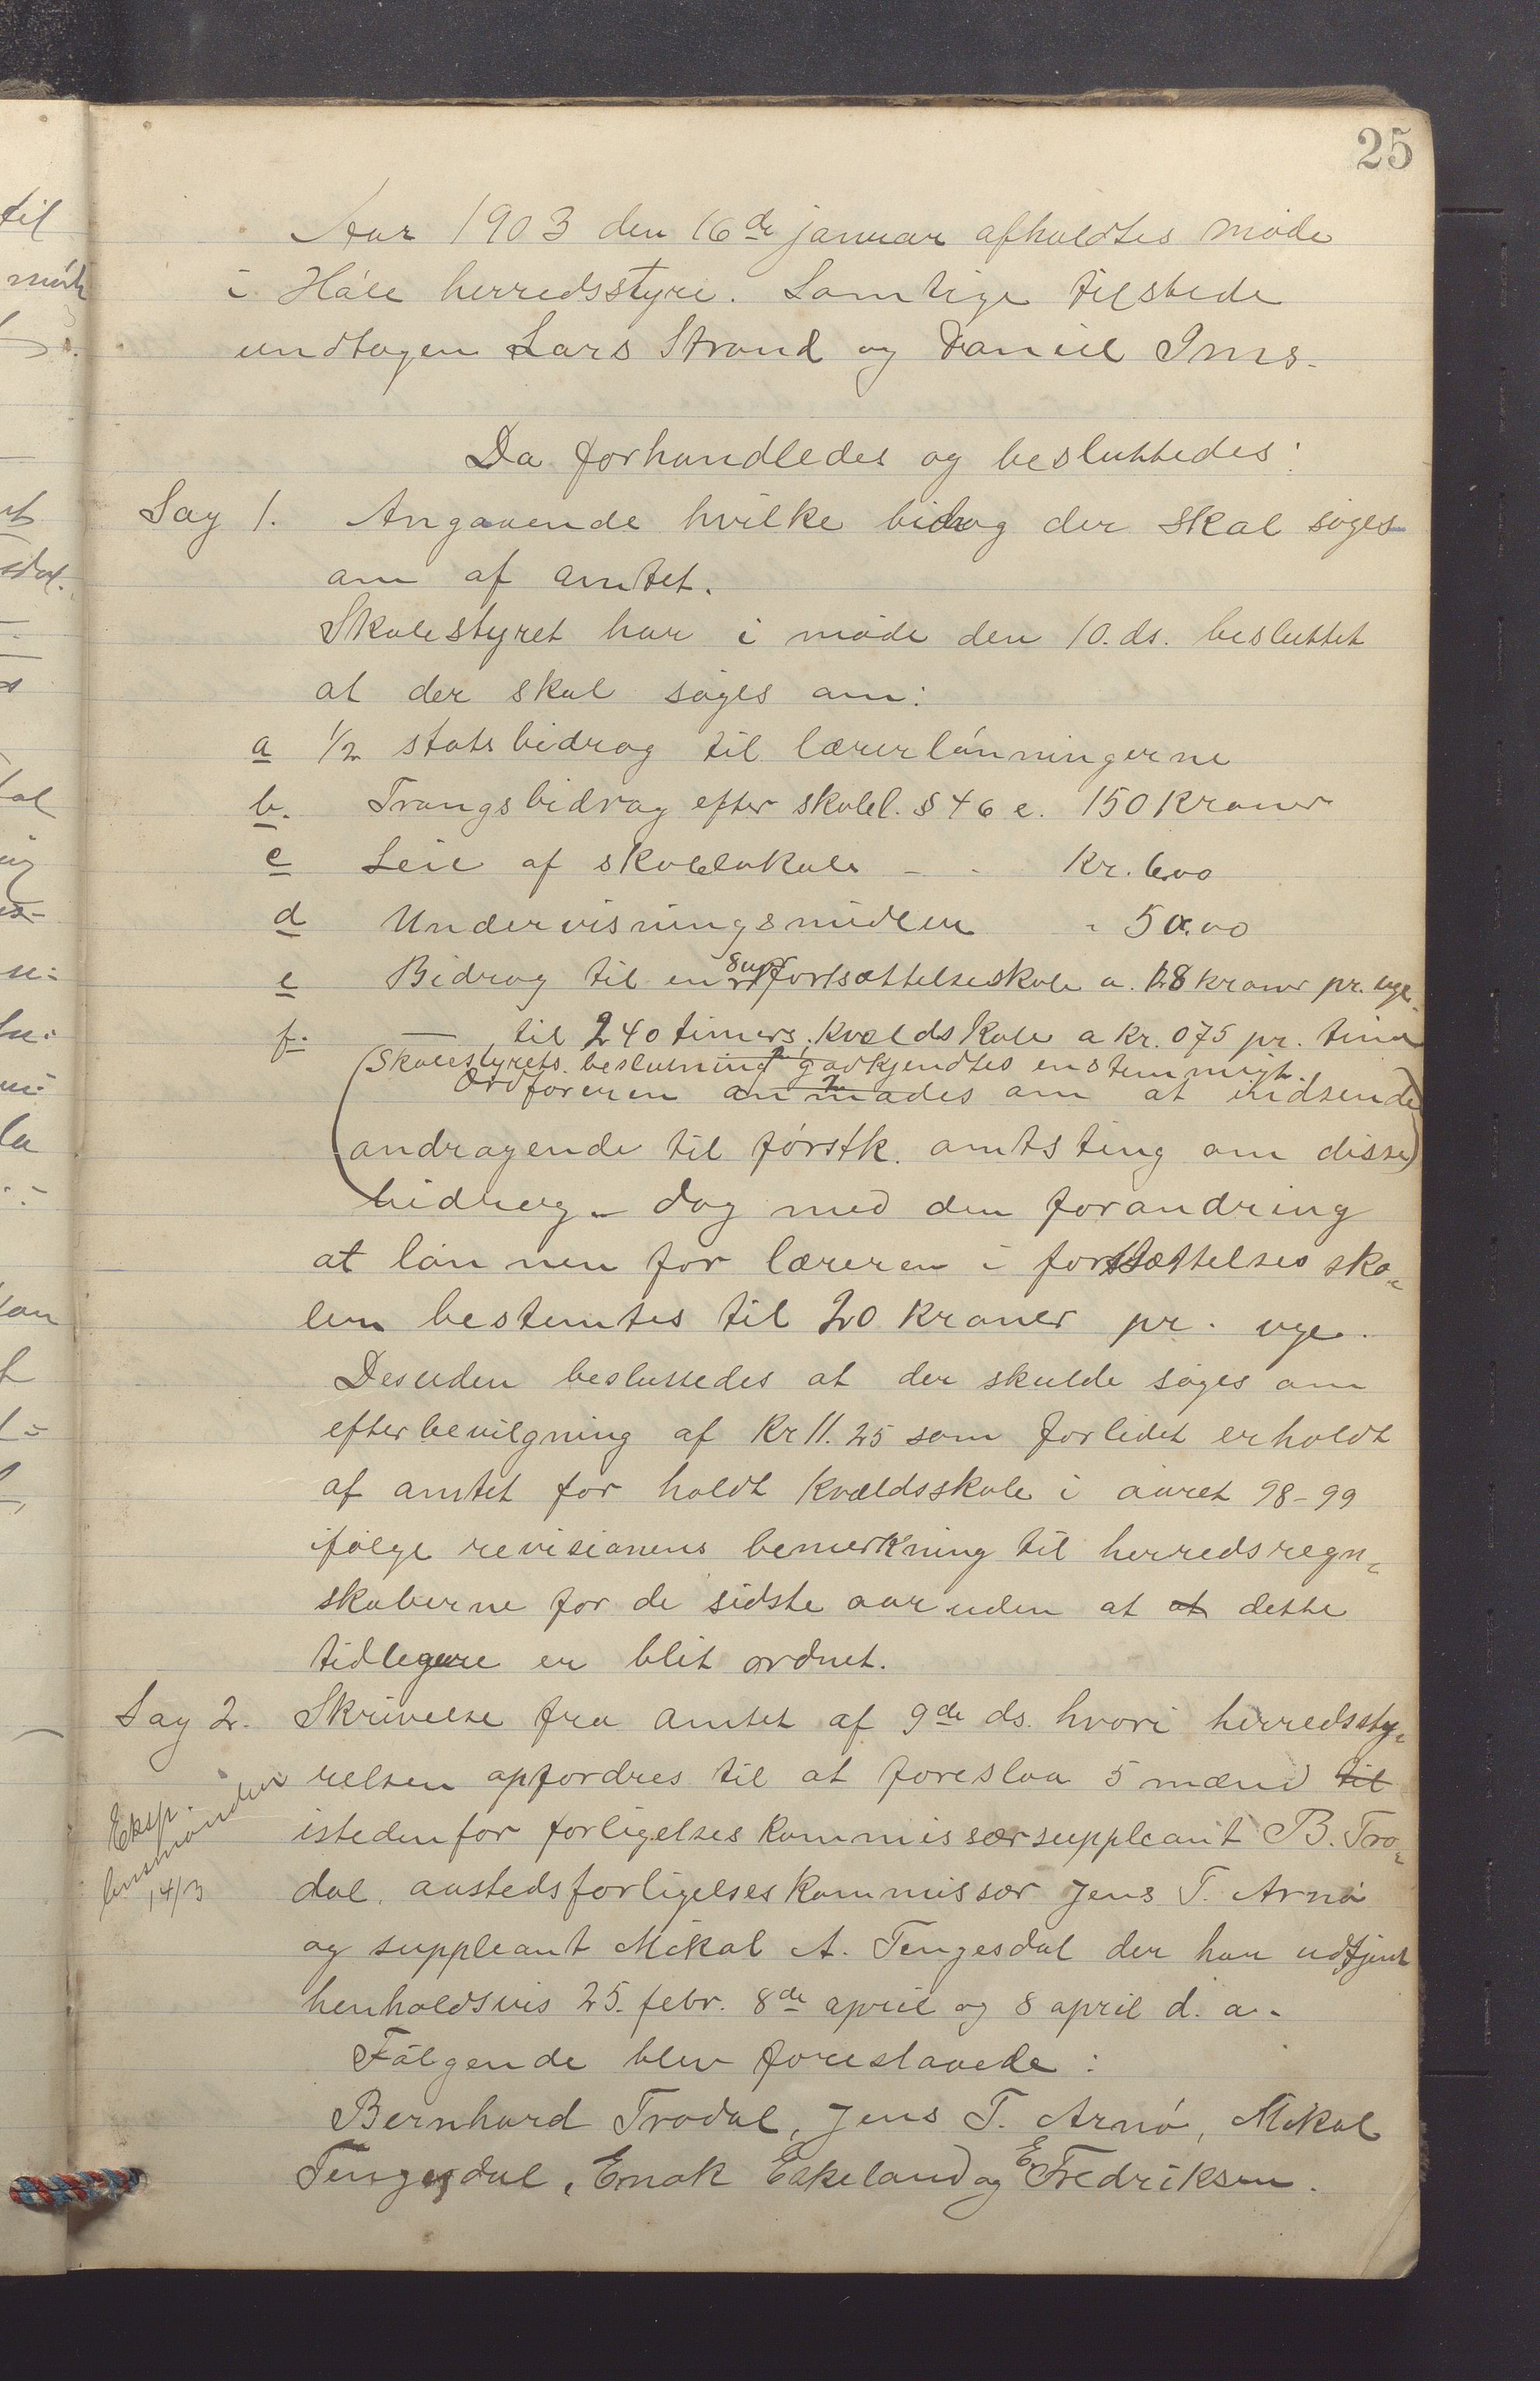 25
Aar 1903 den 16de januar afholdtes møde
i Håle herredsstyre. Samtlige tilstede
undtagen Lars Strand og Daniel Ims.
Da forhandledes og besluttedes:
Sag 1. Angaaende hvilke bidrag der skal søges
om af amtet.
Skolestyret har i møde den 10. ds. besluttet
at der skal søges om:
a 1/2 statsbidrag til lærerlønningerne
b. Trangsbidrag efter skolel. § 46 e. 150 kroner
c Leie af skolelokale - - Kr. 6.00
d Undervisningsmidler " 50.00
e Bidrag til en 8 ugers fortsættelseskole a. 18 kroner pr. uge.
f. — til 240 timers kvældskole a kr. 075 pr. time
(Skolestyrets beslutning godkjendtes enstemmigt.
Ordføreren anmodes om at indsende
andragende til førstk. amtsting om disse)
bidrag - dog med den forandring
at lønnen for læreren i fortsættelses sko-
len bestemtes til 20 kroner pr. uge.
Desuden besluttedes at der skulde søges om
efterbevilgning af Kr 11.25 som forlidet erholdt
af amtet for holdt kvældsskole i aaret 98-99
ifølge revisionens bemerkning til herredsregn-
skaberne for de sidste aar uden at at dette
tidligere er blit ordnet.
Sag 2. Skrivelse fra amtet af 9de ds. hvori herredssty-
relsen opfordres til at foreslaa 5 mænd til
istedenfor forligelseskommissærsuppleant B. Tro-
dal, austedsforligelseskommissær Jens T. Arnø
og suppleant Mikal A. Tengesdal der har udtjent
henholdsvis 25. febr. 8de april og 8 april d. a.
Eksp.
14/3
Følgende blev foreslaaede:
Bernhard Trodal, Jens T. Arnø, Mikal
Tengesdal, Enok Eskeland og E. Fredriksen.